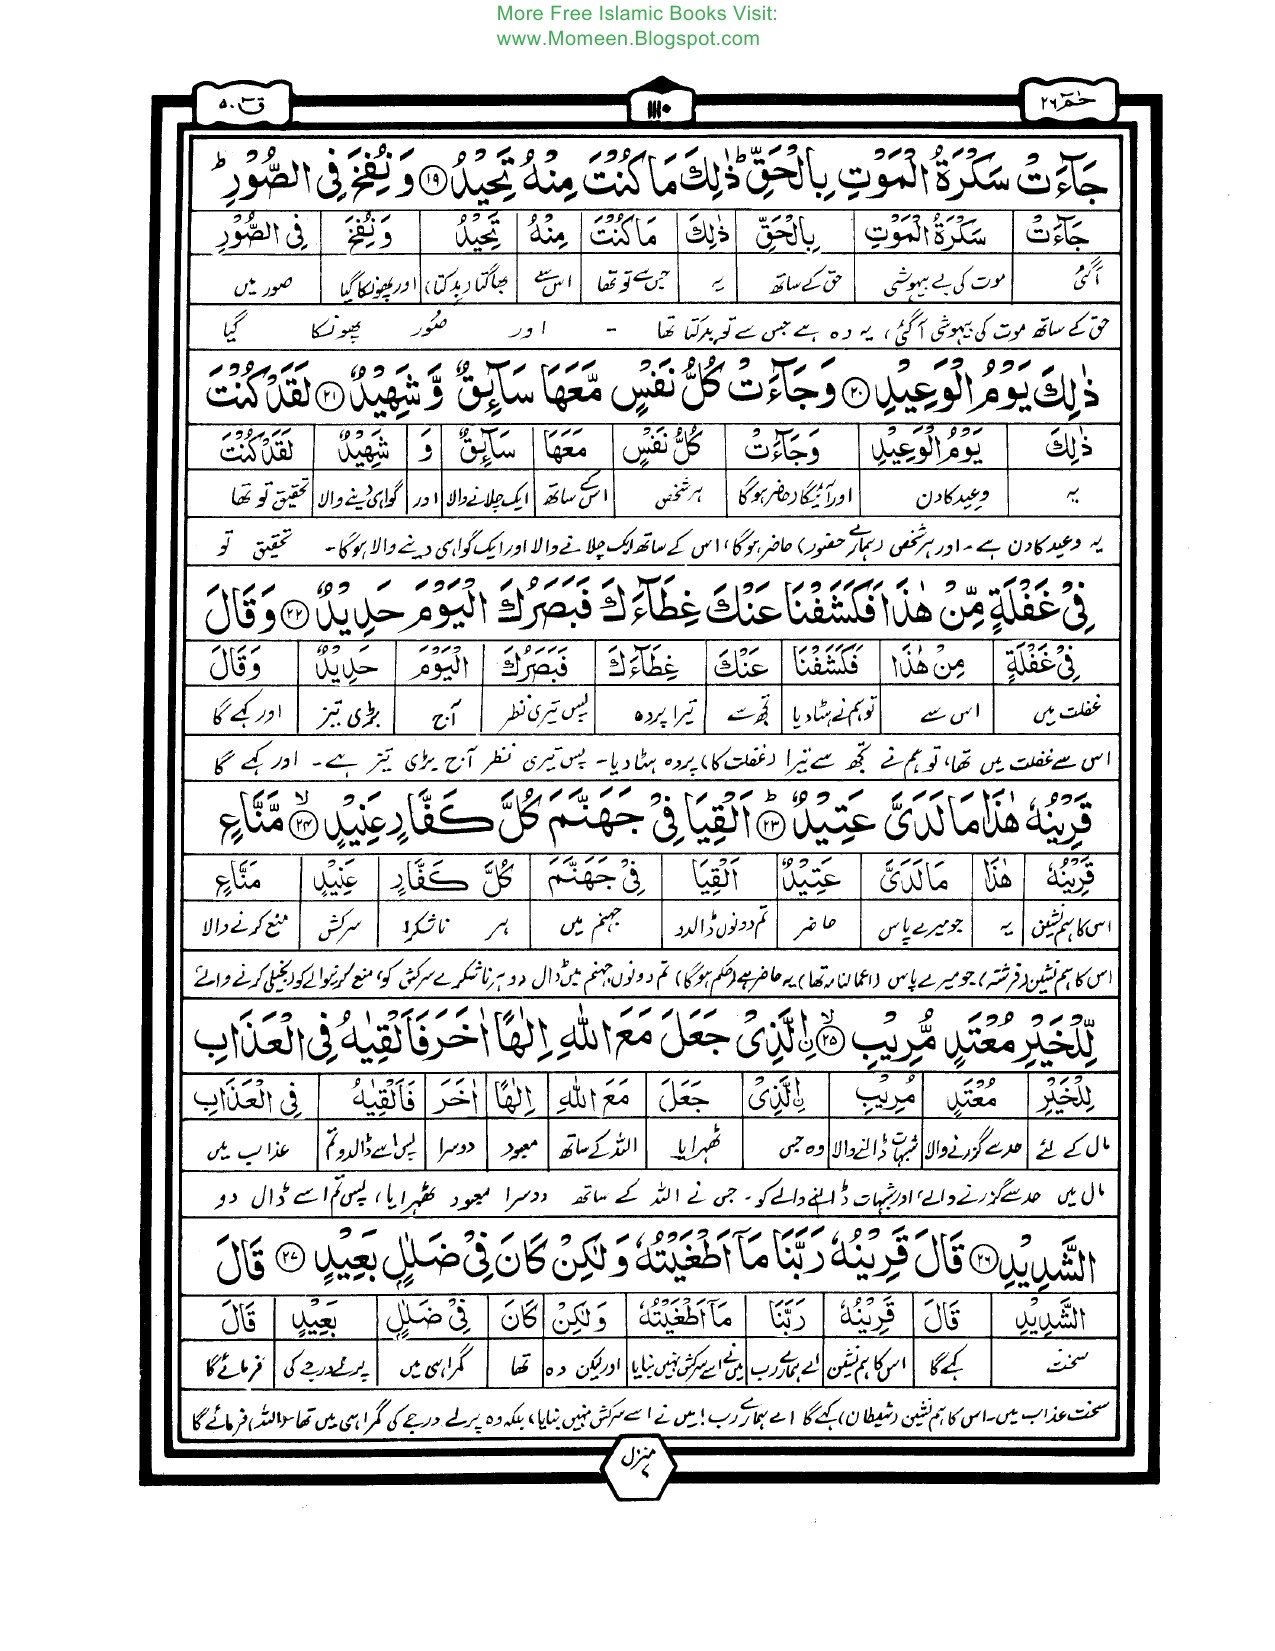 More Free Islamic Books Visit:
www.Momeen.Blogspot.com
حٰمٓ ۲۶
۱۱۱۰
قٓ ۵۰
جَآءَتْ سَكْرَةُ الْمَوْتِ بِالْحَقِّ ؕ ذٰلِكَ مَا كُنْتَ مِنْهُ تَحِيْدُ ﴿۱۹﴾ وَ نُفِخَ فِي الصُّوْرِ ؕ
جَآءَتْ سَكْرَةُ الْمَوْتِ بِالْحَقِّ ذٰلِكَ مَا كُنْتَ مِنْهُ تَحِيْدُ وَ نُفِخَ فِي الصُّوْرِ
آگئی موت کی بے ہوشی حق کے ساتھ یہ جس سے تو تھا اس سے بھاگتا (بدکتا) اور پھونکا گیا صور میں
حق کے ساتھ موت کی بیہوشی آگئی، یہ وہ ہے جس سے تو بدکتا تھا - اور صُور پھونکا گیا
ذٰلِكَ يَوْمُ الْوَعِيْدِ ﴿۲۰﴾ وَ جَآءَتْ كُلُّ نَفْسٍ مَّعَهَا سَآئِقٌ وَّ شَهِيْدٌ ﴿۲۱﴾ لَقَدْ كُنْتَ
ذٰلِكَ يَوْمُ الْوَعِيْدِ وَجَآءَتْ كُلُّ نَفْسٍ مَعَهَا سَآئِقٌ وَ شَهِيْدٌ لَقَدْ كُنْتَ
یہ وعید کا دن اور آئیگا (حاضر ہوگا) ہر شخص اس کے ساتھ ایک چلانے والا اور گواہی دینے والا تحقیق تو تھا
یہ وعید کا دن ہے - اور ہر شخص (ہمارے حضور) حاضر ہوگا، اس کے ساتھ ایک چلانے والا اور ایک گواہی دینے والا ہوگا - تحقیق تو
فِيْ غَفْلَةٍ مِّنْ هٰذَا فَكَشَفْنَا عَنْكَ غِطَآءَكَ فَبَصَرُكَ الْيَوْمَ حَدِيْدٌ ﴿۲۲﴾ وَقَالَ
فِيْ غَفْلَةٍ مِنْ هٰذَا فَكَشَفْنَا عَنْكَ غِطَآءَكَ فَبَصَرُكَ الْيَوْمَ حَدِيْدٌ وَقَالَ
غفلت میں اس سے تو ہم نے ہٹا دیا تجھ سے تیرا پردہ پس تیری نظر آج بڑی تیز اور کہے گا
اس سے غفلت میں تھا، تو ہم نے تجھ سے تیرا (غفلت کا) پردہ ہٹا دیا - پس تیری نظر آج بڑی تیز ہے - اور کہے گا
قَرِيْنُهٗ هٰذَا مَا لَدَيَّ عَتِيْدٌ ؕ ﴿۲۳﴾ اَلْقِيَا فِيْ جَهَنَّمَ كُلَّ كَفَّارٍ عَنِيْدٍ ﴿۲۴﴾ مَّنَّاعٍ
قَرِيْنُهٗ هٰذَا مَا لَدَيَّ عَتِيْدٌ اَلْقِيَا فِيْ جَهَنَّمَ كُلَّ كَفَّارٍ عَنِيْدٍ مَنَّاعٍ
اس کا ہم نشین یہ جو میرے پاس حاضر تم دونوں ڈالدو جہنم میں ہر ناشکرا سرکش منع کرنے والا
اس کا ہم نشین (فرشتہ) جو میرے پاس (اعمالنامہ تھا) یہ حاضر ہے (حکم ہوگا) تم دونوں جہنم میں ڈال دو ہر ناشکرے سرکش کو، منع کرنیوالے کو (بخیلی کرنے والے
لِّلْخَيْرِ مُعْتَدٍ مُّرِيْبِ ﴿۲۵﴾ ۨالَّذِيْ جَعَلَ مَعَ اللّٰهِ اِلٰهًا اٰخَرَ فَاَلْقِيٰهُ فِي الْعَذَابِ
لِلْخَيْرِ مُعْتَدٍ مُرِيْبِ ۨالَّذِيْ جَعَلَ مَعَ اللّٰهِ اِلٰهًا اٰخَرَ فَاَلْقِيٰهُ فِي الْعَذَابِ
مال کے لئے حد سے گزرنے والا شبہات ڈالنے والا وہ جس ٹھہرایا اللہ کے ساتھ معبود دوسرا پس اسے ڈالدو تم عذاب میں
مال میں حد سے گزرنے والے، اور شبہات ڈالنے والے کو - جس نے اللہ کے ساتھ دوسرا معبود ٹھہرایا، پس تم اسے ڈال دو
الشَّدِيْدِ ﴿۲۶﴾ قَالَ قَرِيْنُهٗ رَبَّنَا مَآ اَطْغَيْتُهٗ وَ لٰكِنْ كَانَ فِيْ ضَلٰلٍۭ بَعِيْدٍ ﴿۲۷﴾ قَالَ
الشَّدِيْدِ قَالَ قَرِيْنُهٗ رَبَّنَا مَآ اَطْغَيْتُهٗ وَ لٰكِنْ كَانَ فِيْ ضَلٰلٍ بَعِيْدٍ قَالَ
سخت کہے گا اس کا ہم نشین اے ہمارے رب میں نے اسے سرکش نہیں بنایا اور لیکن وہ تھا گمراہی میں پرلے درجے کی فرمائے گا
سخت عذاب میں - اس کا ہم نشین (شیطان) کہے گا اے ہمارے رب! میں نے اسے سرکش نہیں بنایا، بلکہ وہ پرلے درجے کی گمراہی میں تھا - (اللہ) فرمائے گا
منزل ۷